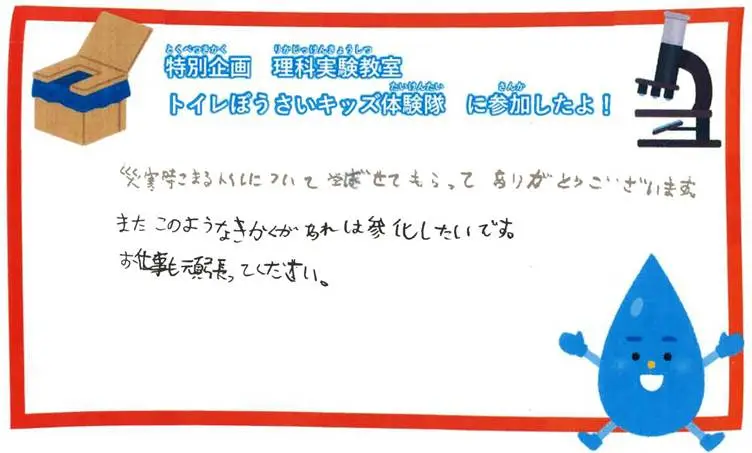 とくべつきかく　りかじっけんきょうしつ
特別企画　理科実験教室
たいけんたい　さんか
トイレぼうさいキッズ体験隊　に参加したよ！
災害時こまるトイレについて 学ばせてもらって ありがとうございます。
また このようなきかくがあれは参化したいです。
お仕事も頑張ってください。